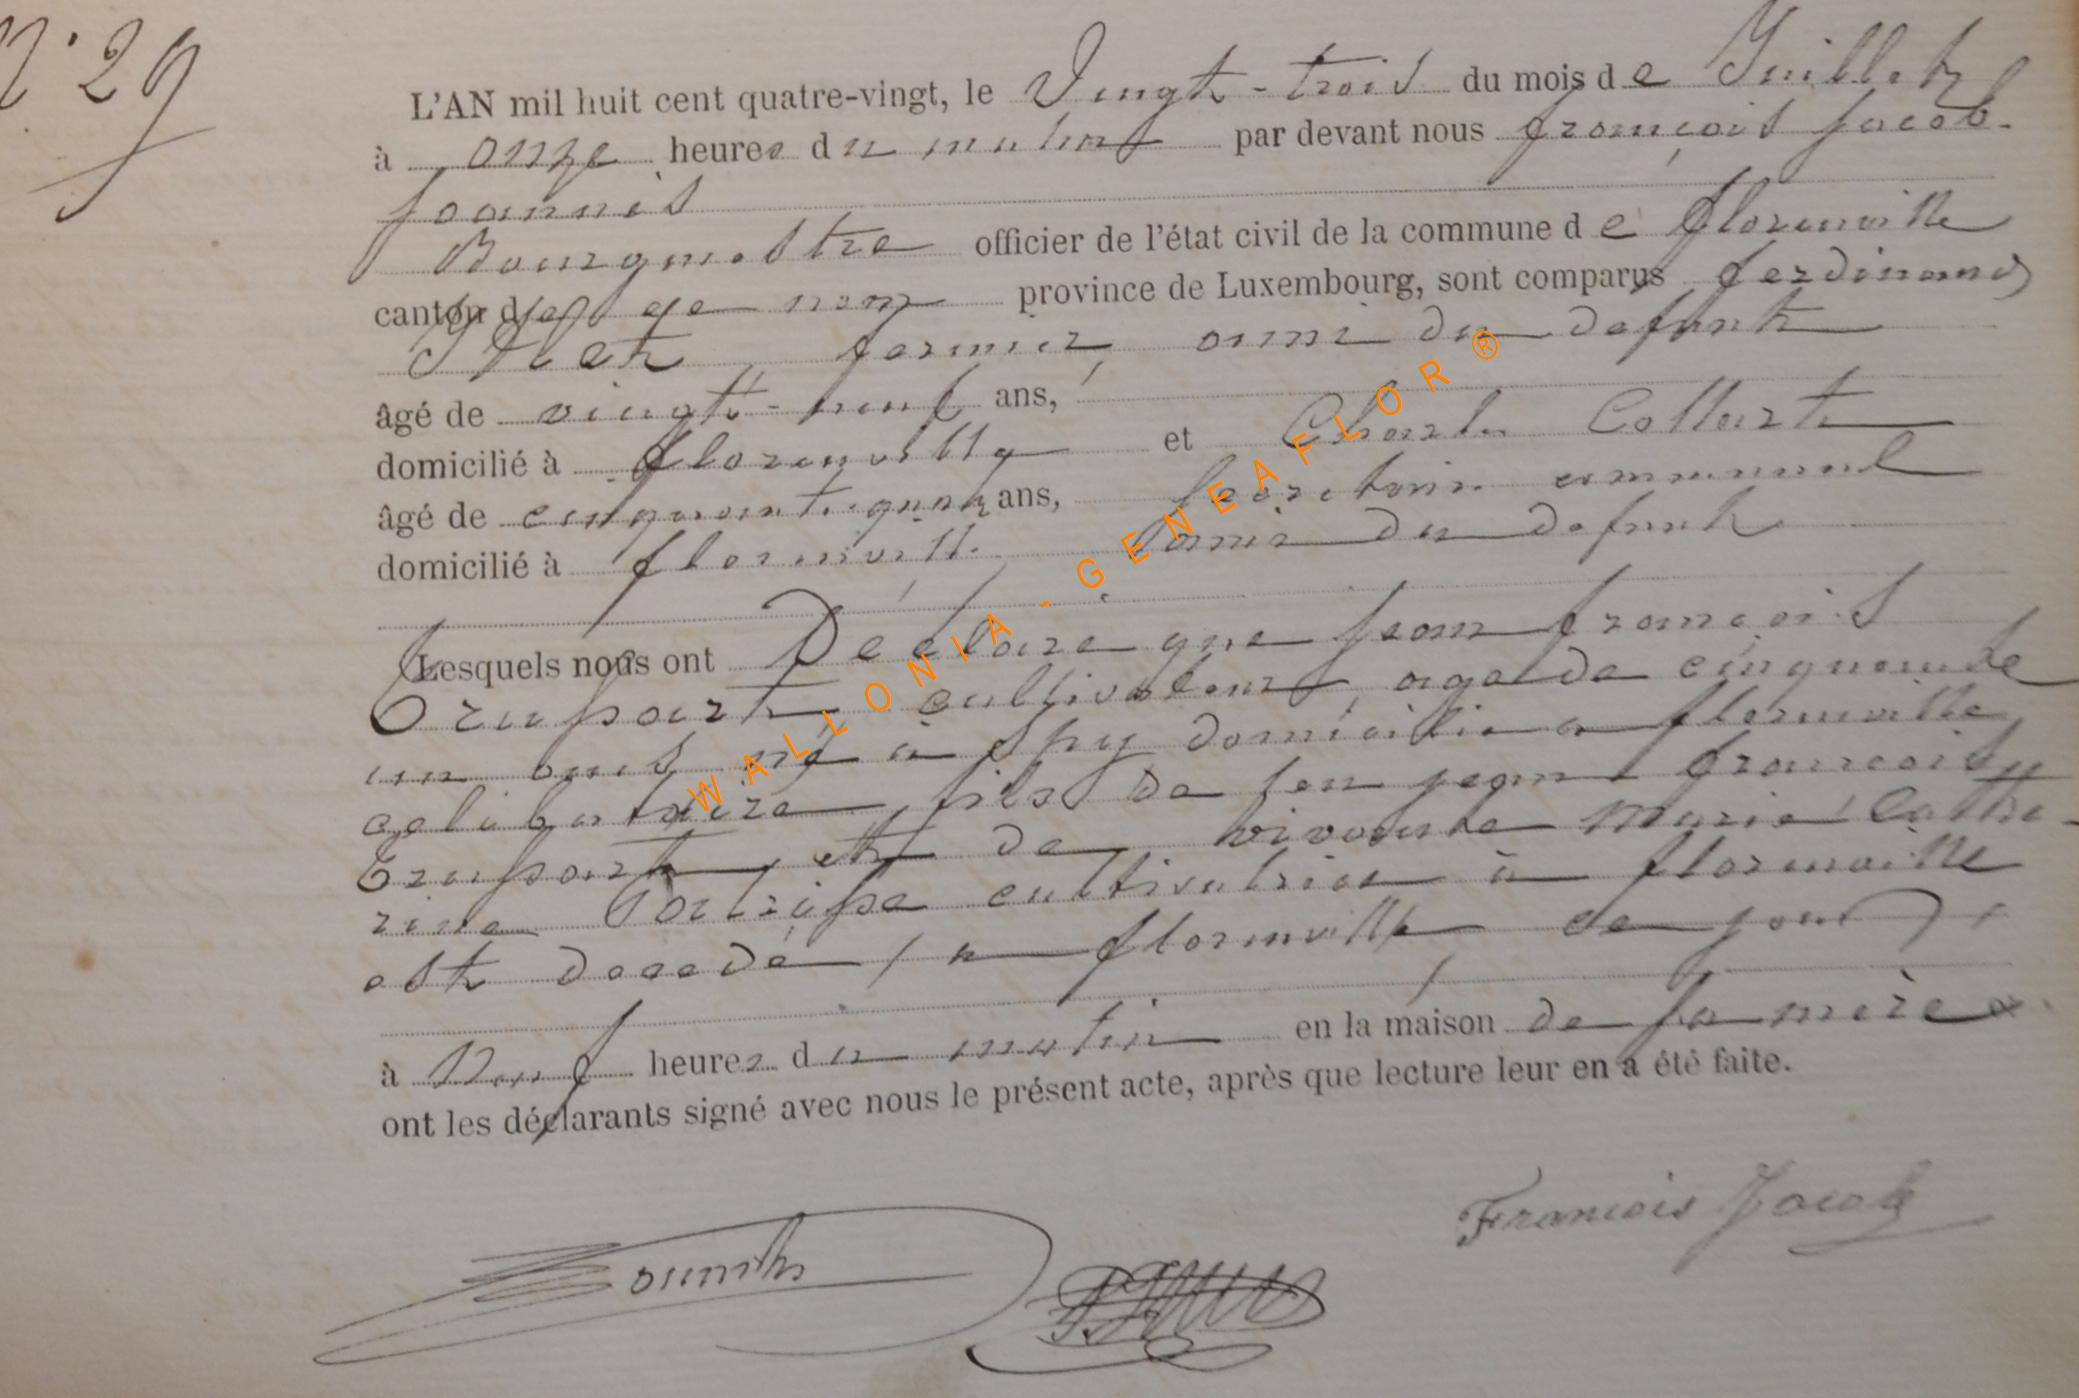 N° 29
L'AN mil huit cent quatre-vingt, le Vingt-trois du mois de Juillet
à onze heures du matin par devant nous françois Jacob
Joannès
Bourgmestre officier de l'état civil de la commune de florenville
canton de ce nom province de Luxembourg, sont comparus ferdinand
fermier, ami du defunt
âgé de vingt-neuf ans,
domicilié à florenville et Charles Collart
âgé de cinquante quatre ans, Secrétaire communal
domicilié à florenville ami du defunt
Lesquels nous ont Déclaré que jean françois
Trussart, cultivateur, agé de cinquante
un ans né à Spy domicilié a florenville
celibataire, fils de feu jean françois
Trussart, et de vivante Marie Cathe-
rine cultivatrice à florenville
est decedé, a florenville ce jour
à neuf heures du matin en la maison de sa mère
ont les déclarants signé avec nous le présent acte, après que lecture leur en a été faite.
François Jacob
WALLONIA - GENEAFLOR®